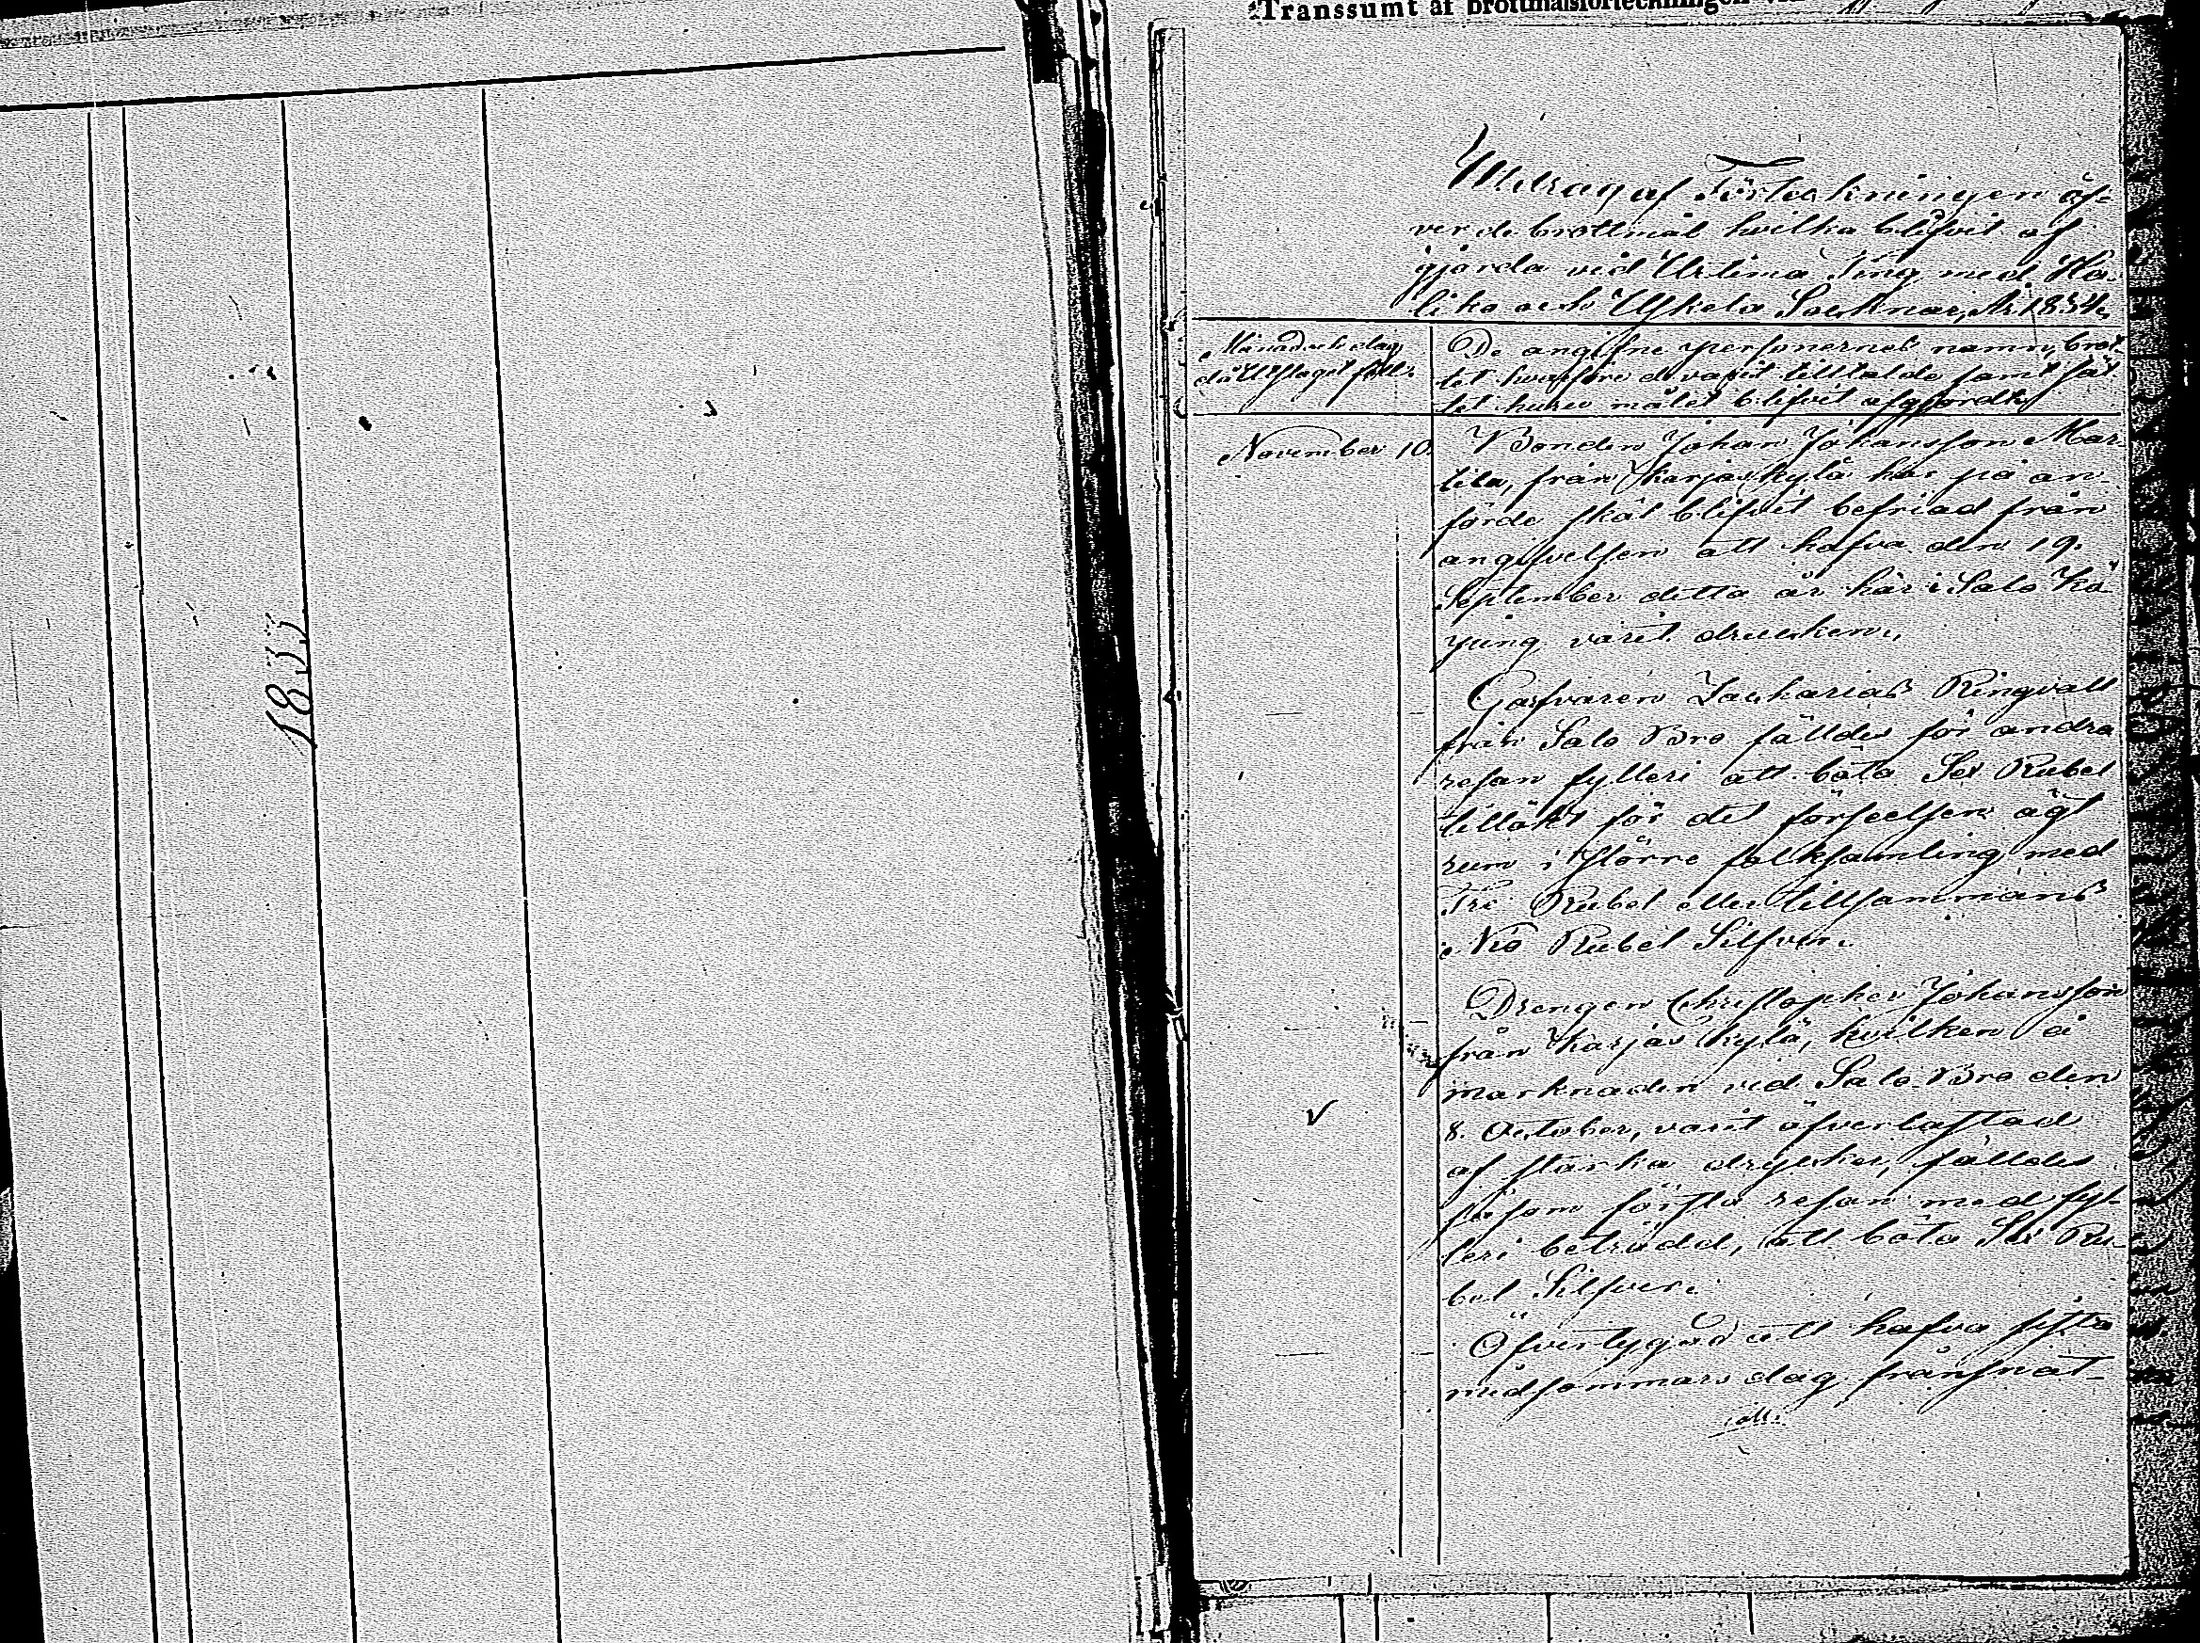 1833
Transsumt af brottmålsförteckningen
Utdrag af Förteckningen öf-
ver de brottmål hvilka blifvit af
gjorda vid Urtima Ting med Ha-
liko och Uskela Socknar, År 1834.
Månad och dag
då Utslaget föll.
De angifne personernes namn, brot-
tet hvarföre de varit tilltalde samt sät
tet huru målet blifvit afgjordt
November 10.
Bonden Johan Johansson Mar-
tila, från Karjaskylä har på an-
förde skäl blifvit befriad från
angifvelsen att hafva den 19.
September detta år här i Salo Kö-
ping varit drucken.
Garfvaren Zacharias Ringvall
från Salo Bro fälldes för andra
resan fylleri att böta Sex Rubel
tillökt för det förseelsen ägt
rum i större folksamling med
Tre Rubel eller tillsammans
Nio Rubel Silfver.
Drengen Christopher Johansson
från Karjaskylä, hvilken å
marknaden vid Salo Bro den
8. October, varit öfverlastad
af starka drycker, fälldes
såsom första resan med fyl-
leri beträdd, att böta Sex Ru-
bel Silfver.
Öfvertygad att hafva sista
midsommars dag frånsnat-